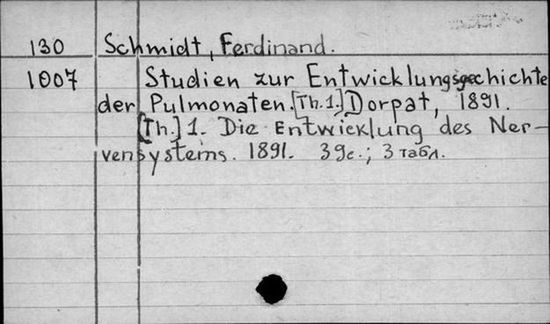 130 Schmidt, Ferdinand.
1007 Studien zur Entwicklungsgechichte
der Pulmonaten. [Th. 1.] Dorpat, 1891.
[Th.] 1. Die Entwicklung des Ner-
vensystems. 1891. 39c.; 3 табл.